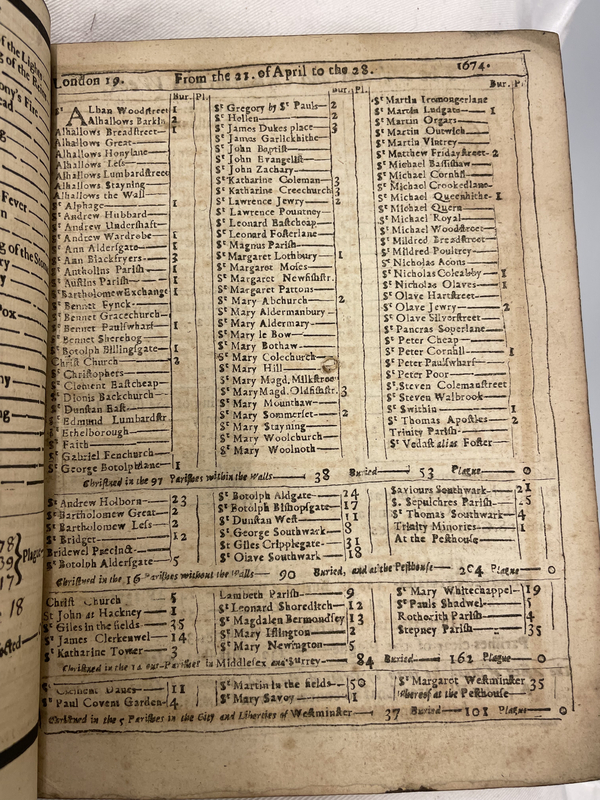 London 19. From the 21. of April to the 28. 1674.
Bur. Pl.
St Alban Woodstreet 1
Alhallows Barkin 2
Alhallows Breadstreet 1
Alhallows Great
Alhallows Honylane
Alhallows Less
Alhallows Lumbardstreet
Alhallows Stayning
Alhallows the Wall
St Alphage 1
St Andrew Hubbard
St Andrew Undershaft
St Andrew Wardrobe 1
St Ann Aldersgate 1
St Ann Blackfryers 3
St Antholins Parish 1
St Austins Parish 1
St Bartholomew Exchange 1
St Bennet Fynck
St Bennet Gracechurch
St Bennet Paulswharf 1
St Bennet Sherehog
St Botolph Billingsgate 1
Christ Church 2
St Christophers
St Clement Eastcheap
St Dionis Backchurch
St Dunstan East
St Edmund Lumbardstr
St Ethelborough
St Faith
St Gabriel Fenchurch
St George Botolphlane 1
Bur. Pl.
St Gregory by St Pauls 2
St Hellen 2
St James Dukes place 3
St James Garlickhithe
St John Baptist
St John Evangelist
St John Zachary
St Katharine Coleman 3
St Katharine Creechurch 3
St Lawrence Jewry 2
St Lawrence Pountney
St Leonard Eastcheap
St Leonard Fosterlane
St Magnus Parish
St Margaret Lothbury 1
St Margaret Moses
St Margaret Newfishstr.
St Margaret Pattons
St Mary Abchurch 2
St Mary Aldermanbury
St Mary Aldermary
St Mary le Bow
St Mary Bothaw
St Mary Colechurch
St Mary Hill
St Mary Magd. Milkstreet
St Mary Magd. Oldfishstr. 3
St Mary Mounthaw
St Mary Sommerset 2
St Mary Stayning
St Mary Woolchurch
St Mary Woolnoth
Bur. P
St Martin Iremongerlane
St Martin Ludgate 1
St Martin Orgars
St Martin Outwich
St Martin Vintrey
St Matthew Fridaystreet 2
St Michael Bassishaw
St Michael Cornhil
St Michael Crookedlane
St Michael Queenhithe 1
St Michael Quern
St Michael Royal
St Michael Woodstreet
St Mildred Breadstreet
St Mildred Poultrey
St Nicholas Acons
St Nicholas Coleabby 1
St Nicholas Olaves 1
St Olave Hartstreet
St Olave Jewry 2
St Olave Silverstreet
St Pancras Soperlane
St Peter Cheap
St Peter Cornhil 1
St Peter Paulswharf
St Peter Poor
St Steven Colemanstreet
St Steven Walbrook
St Swithin 1
St Thomas Apostles 2
Trinity Parish
St Vedast alias Foster
Christned in the 97 Parishes within the walls 38 Buried 53 Plague 0
St Andrew Holborn 23
St Bartholomew Great 2
St Bartholomew Less 2
St Bridget 12
Bridewel Precinct
St Botolph Aldersgate 5
St Botolph Aldgate 24
St Botolph Bishopsgate 17
St Dunstan West 11
St George Southwark 8
St Giles Cripplegate 31
St Olave Southwark 18
Saviours Southwark 21
S. Sepulchres Parish
St Thomas Southwark 4
Trinity Minories 1
At the Pesthouse
Christned in the 16 Parishes without the Walls 90 Buried, and at the Pesthouse 204 Plague 0
Christ Church 5
St John at Hackney 1
St Giles in the fields 35
St James Clerkenwel 14
St Katharine Tower 3
Lambeth Parish 9
St Leonard Shoreditch 12
St Magdalen Bermondsey 13
St Mary Islington 2
St Mary Newington 5
St Mary Whitechappel 19
St Pauls Shadwel 5
Rotherith Parish 4
Stepney Parish 35
Christned in the 12 out-Parishes in Middlesex and Surrey 84 Buried 162 Plague 0
St Clement Danes 11
St Paul Covent Garden 4
St Martin in the fields 50
St Mary Savoy 1
St Margaret Westminster 35
Whereof at the Pesthouse
Christned in the 5 Parishes in the City and Liberties of Westminster 37 Buried 101 Plague 0